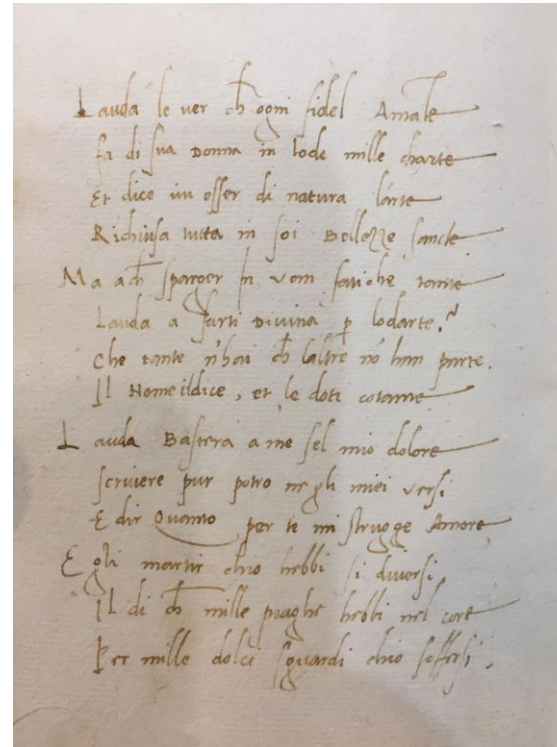 Lauda le ver ch ogni fidel Amāte
fa di sua Donna in lode mille charte
Et dice ivi esser di natura l'arte
Richiusa tutta in soi Bellezze sancte
Ma a ch̄ sparger in van fatiche tante
Lauda a farti Divina p̱ lodarte?
Che tante n'hai ch̄ l'altre nō han parte.
Il Nome il dice, et le doti cotante
Lauda Bastera a me sel mio dolore
scriviere pur potro ne gli miei versi
E dir Quanto per te mi strugge Amore
E gli martir chio hebbi si diversi
Il di ch̄ mille piaghe hebbi nel core
Per mille dolci sguardi chio soffersi.